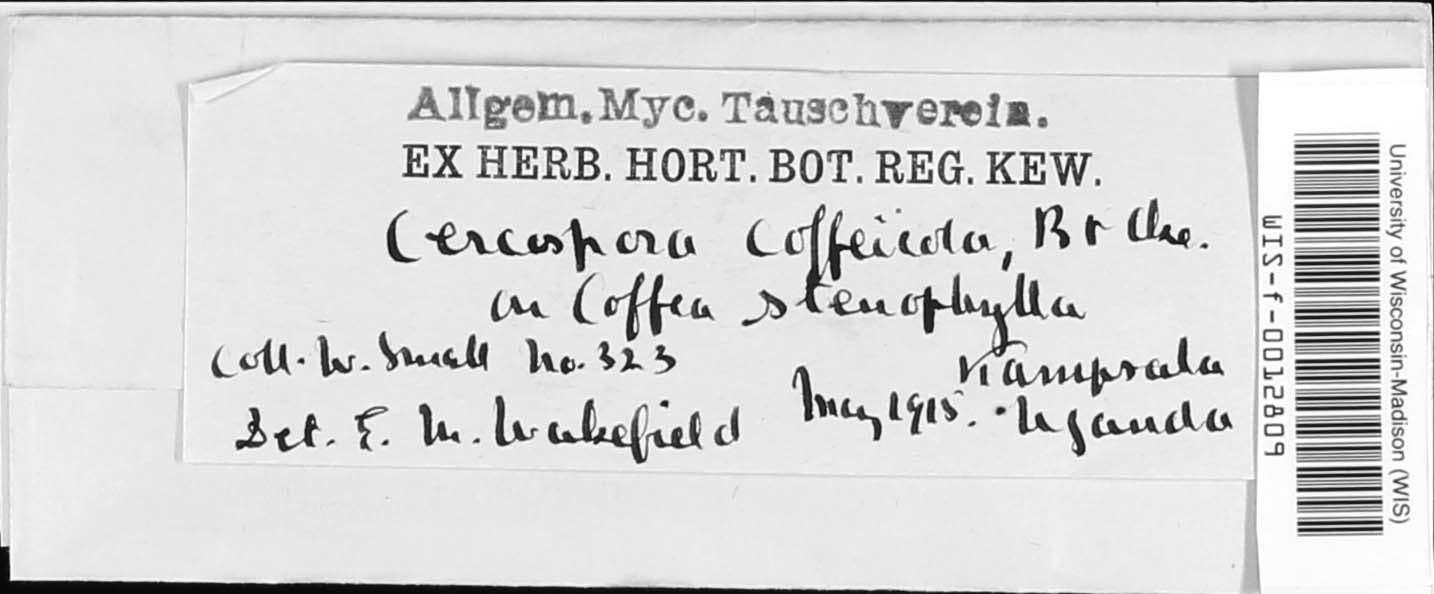 Allgem. Myc. Tauschverein.
EX HERB. HORT. BOT. REG. KEW.
Cercospora coffeicola, B & Cke.
on Coffea stenophylla
Coll. W. Small No. 323
Kampala
Det. E. M. Wakefield May 1915. Uganda
University of Wisconsin-Madison (WIS)
WIS-f-0012809